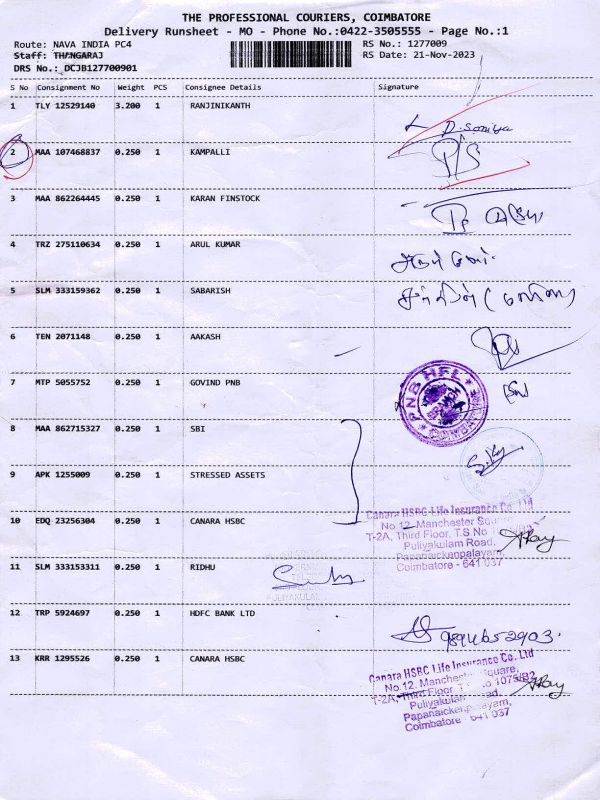 THE PROFESSIONAL COURIERS, COIMBATORE
Delivery Runsheet - MO - Phone No.:0422-3505555 - Page No.:1
Route: NAVA INDIA PC4 RS No.: 1277009
Staff: THANGARAJ RS Date: 21-Nov-2023
DRS No.: DCJB127700901
S No Consignment No Weight PCS Consignee Details Signature
1 TLY 12529140 3.200 1 RANJINIKANTH
2 MAA 107468837 0.250 1 KAMPALLI
3 MAA 862264445 0.250 1 KARAN FINSTOCK
4 TRZ 275110634 0.250 1 ARUL KUMAR
5 SLM 333159362 0.250 1 SABARISH
6 TEN 2071148 0.250 1 AAKASH
7 MTP 5055752 0.250 1 GOVIND PNB
PNB HFL
8 MAA 862715327 0.250 1 SBI
9 APK 1255009 0.250 1 STRESSED ASSETS
10 EDQ 23256304 0.250 1 CANARA HSBC
Canara HSBC Life Insurance Co. Ltd
No.12, Manchester
T-2A, Third Floor, T.S No
Puliyakulam Road,
Papanaickenpalayam,
Coimbatore - 641 037
11 SLM 333153311 0.250 1 RIDHU
12 TRP 5924697 0.250 1 HDFC BANK LTD
13 KRR 1295526 0.250 1 CANARA HSBC
Canara HSBC Life Insurance Co. Ltd
No.12, Manchester Square,
T-2A, Third Floor
Puliyakulam Road,
Papanaickenpalayam,
Coimbatore - 641 037